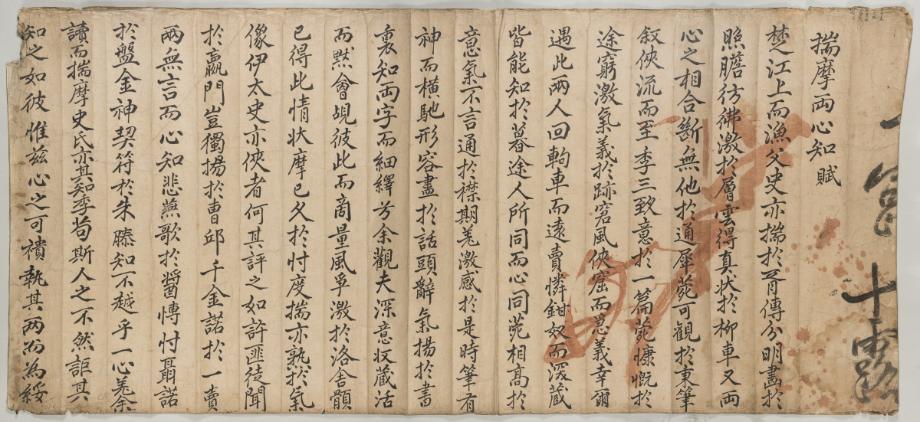 揣摩両心知賦
楚江上而漁父史亦揣於肖傳分明畵於
照膽彷彿激於層雲得真状於柳車又両
心之相合斷無他於通犀菀可觀於東筆
叙俠流而至季三致意於一篇菀慷慨於
途窮激氣義於跡窘風俠屈而思義幸爾
遇此兩人回軔車而遠賣憐鉗奴而深蔵
皆能知於暮途人所同而心同菀相髙於
意氣不言通於襟期羌激感於是時筆有
神而橫馳形容盡於話頭辭氣揚於書
裏知両字而細繹芳余觀夫深意収蔵活
而黙會覘彼此而商量風孚激於洛舍顔
已得此情状摩已久於忖度揣亦熟於氣
像伊太史亦俠者何其評之如許匪徒聞
於嬴門豈獨揚於曹邱千金諾於一賣
兩無言而心知悲燕歌於醬慱忖聶諾
於盤金神契符於朱滕知不越乎一心羗
讀而揣摩史氏亦其知季苟斯人之不然詎其
知之如彼惟玆心之可積執其两而為綏
一
十